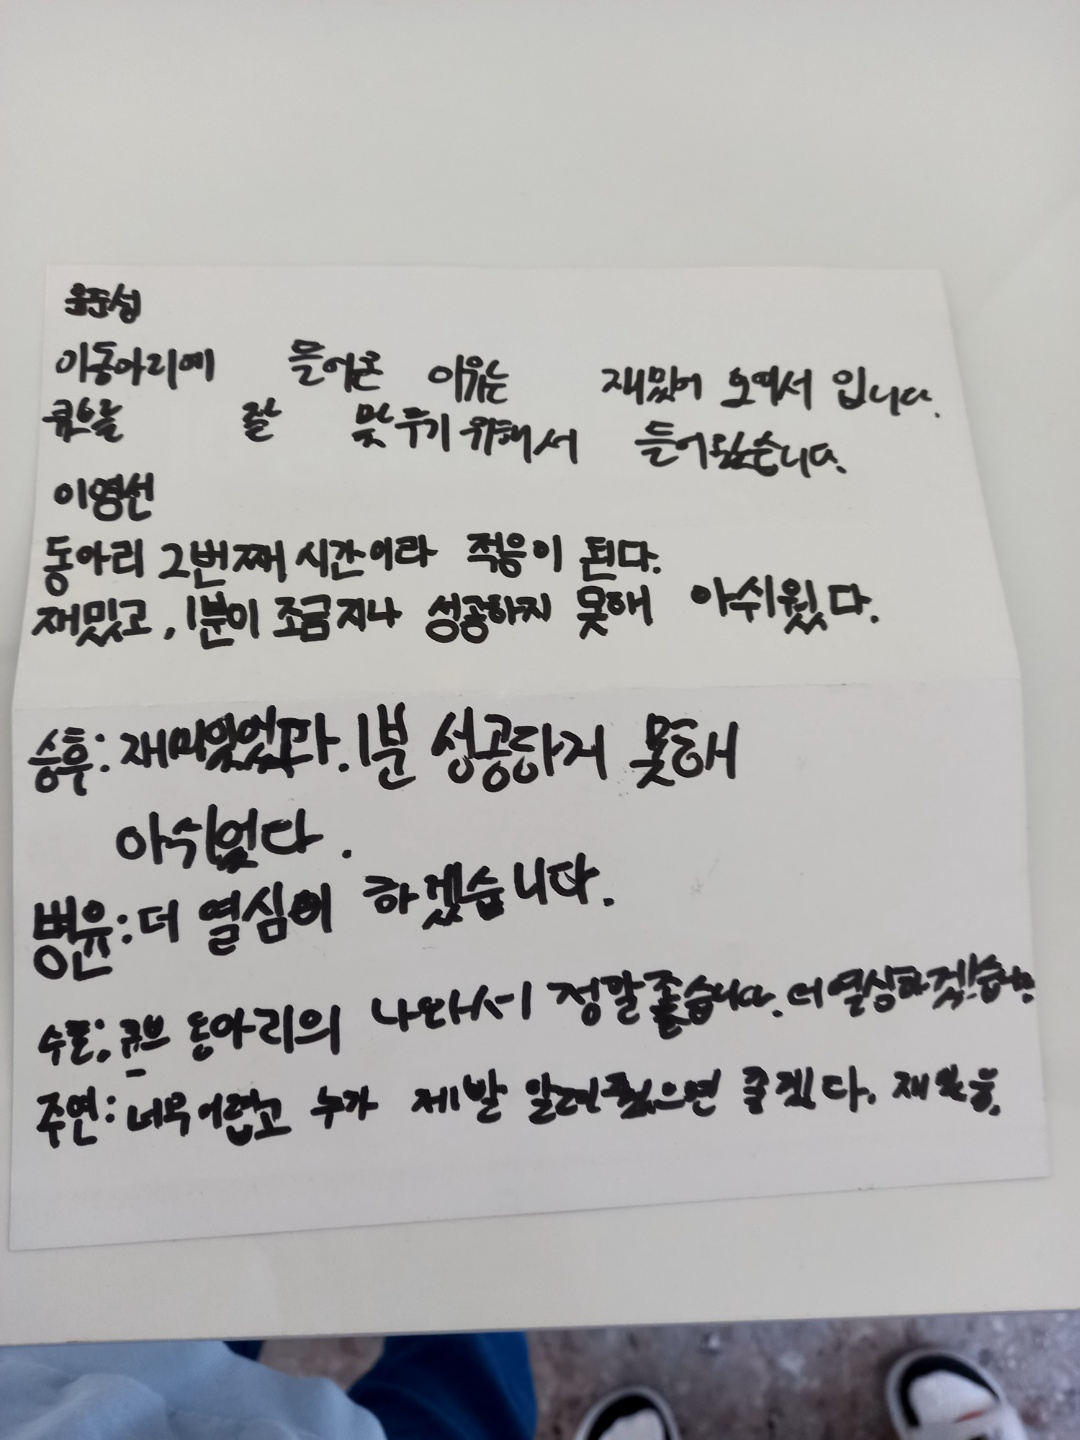 윤준성
이동아리에 들어온 이유는 재밌어 보여서 입니다.
큐브를 잘 맞추기 위해서 들어왔습니다.
이영선
동아리 2번째 시간이라 적응이 된다.
재밌고, 1분이 조금 지나 성공하지 못해 아쉬웠다.
승후: 재미있었다. 1분 성공하지 못해
아쉬웠다.
병윤: 더 열심히 하겠습니다.
큐브 동아리의 나와서 정말좋습니다. 더 열심하겠습니다.
주연: 너무 어렵고 누가 제발 알려줬으면 좋겠다.